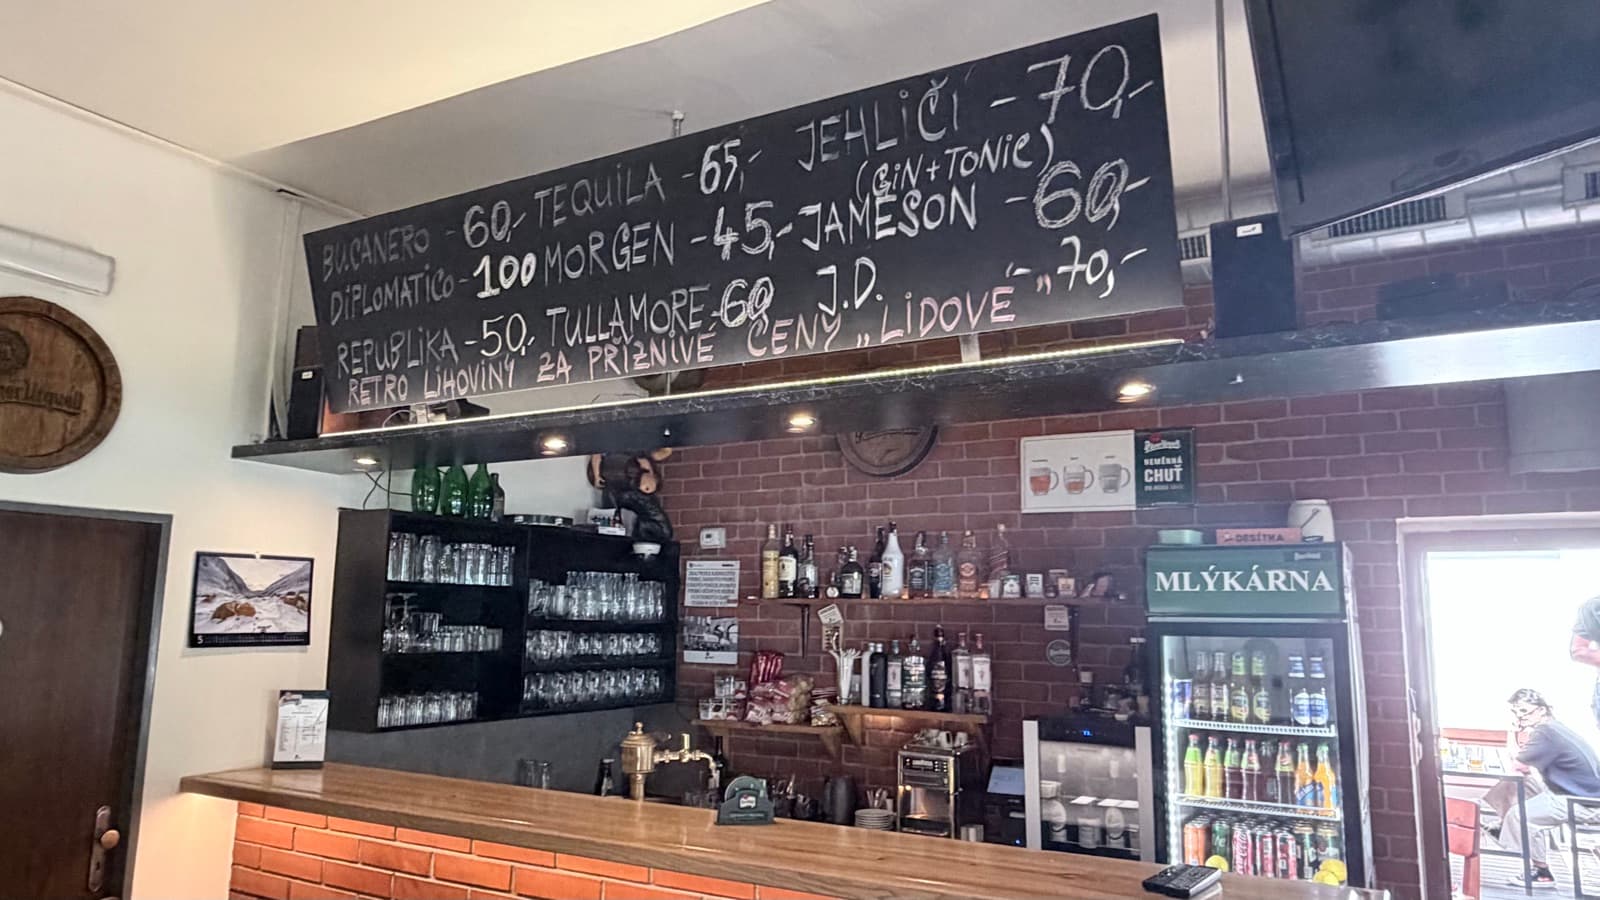 BUCANERO - 60,- TEQUILA - 65,- JEHLIČÍ - 70,-
(GIN + TONIC)
DIPLOMATICO - 100 MORGEN - 45,- JAMESON - 60,-
REPUBLIKA - 50,- TULLAMORE - 60 J.D. - 70,-
RETRO LIHOVINY ZA PŘÍZNIVÉ CENY „LIDOVÉ"
NEMĚNNÁ
CHUŤ
DESÍTKA
MLÝKÁRNA
5